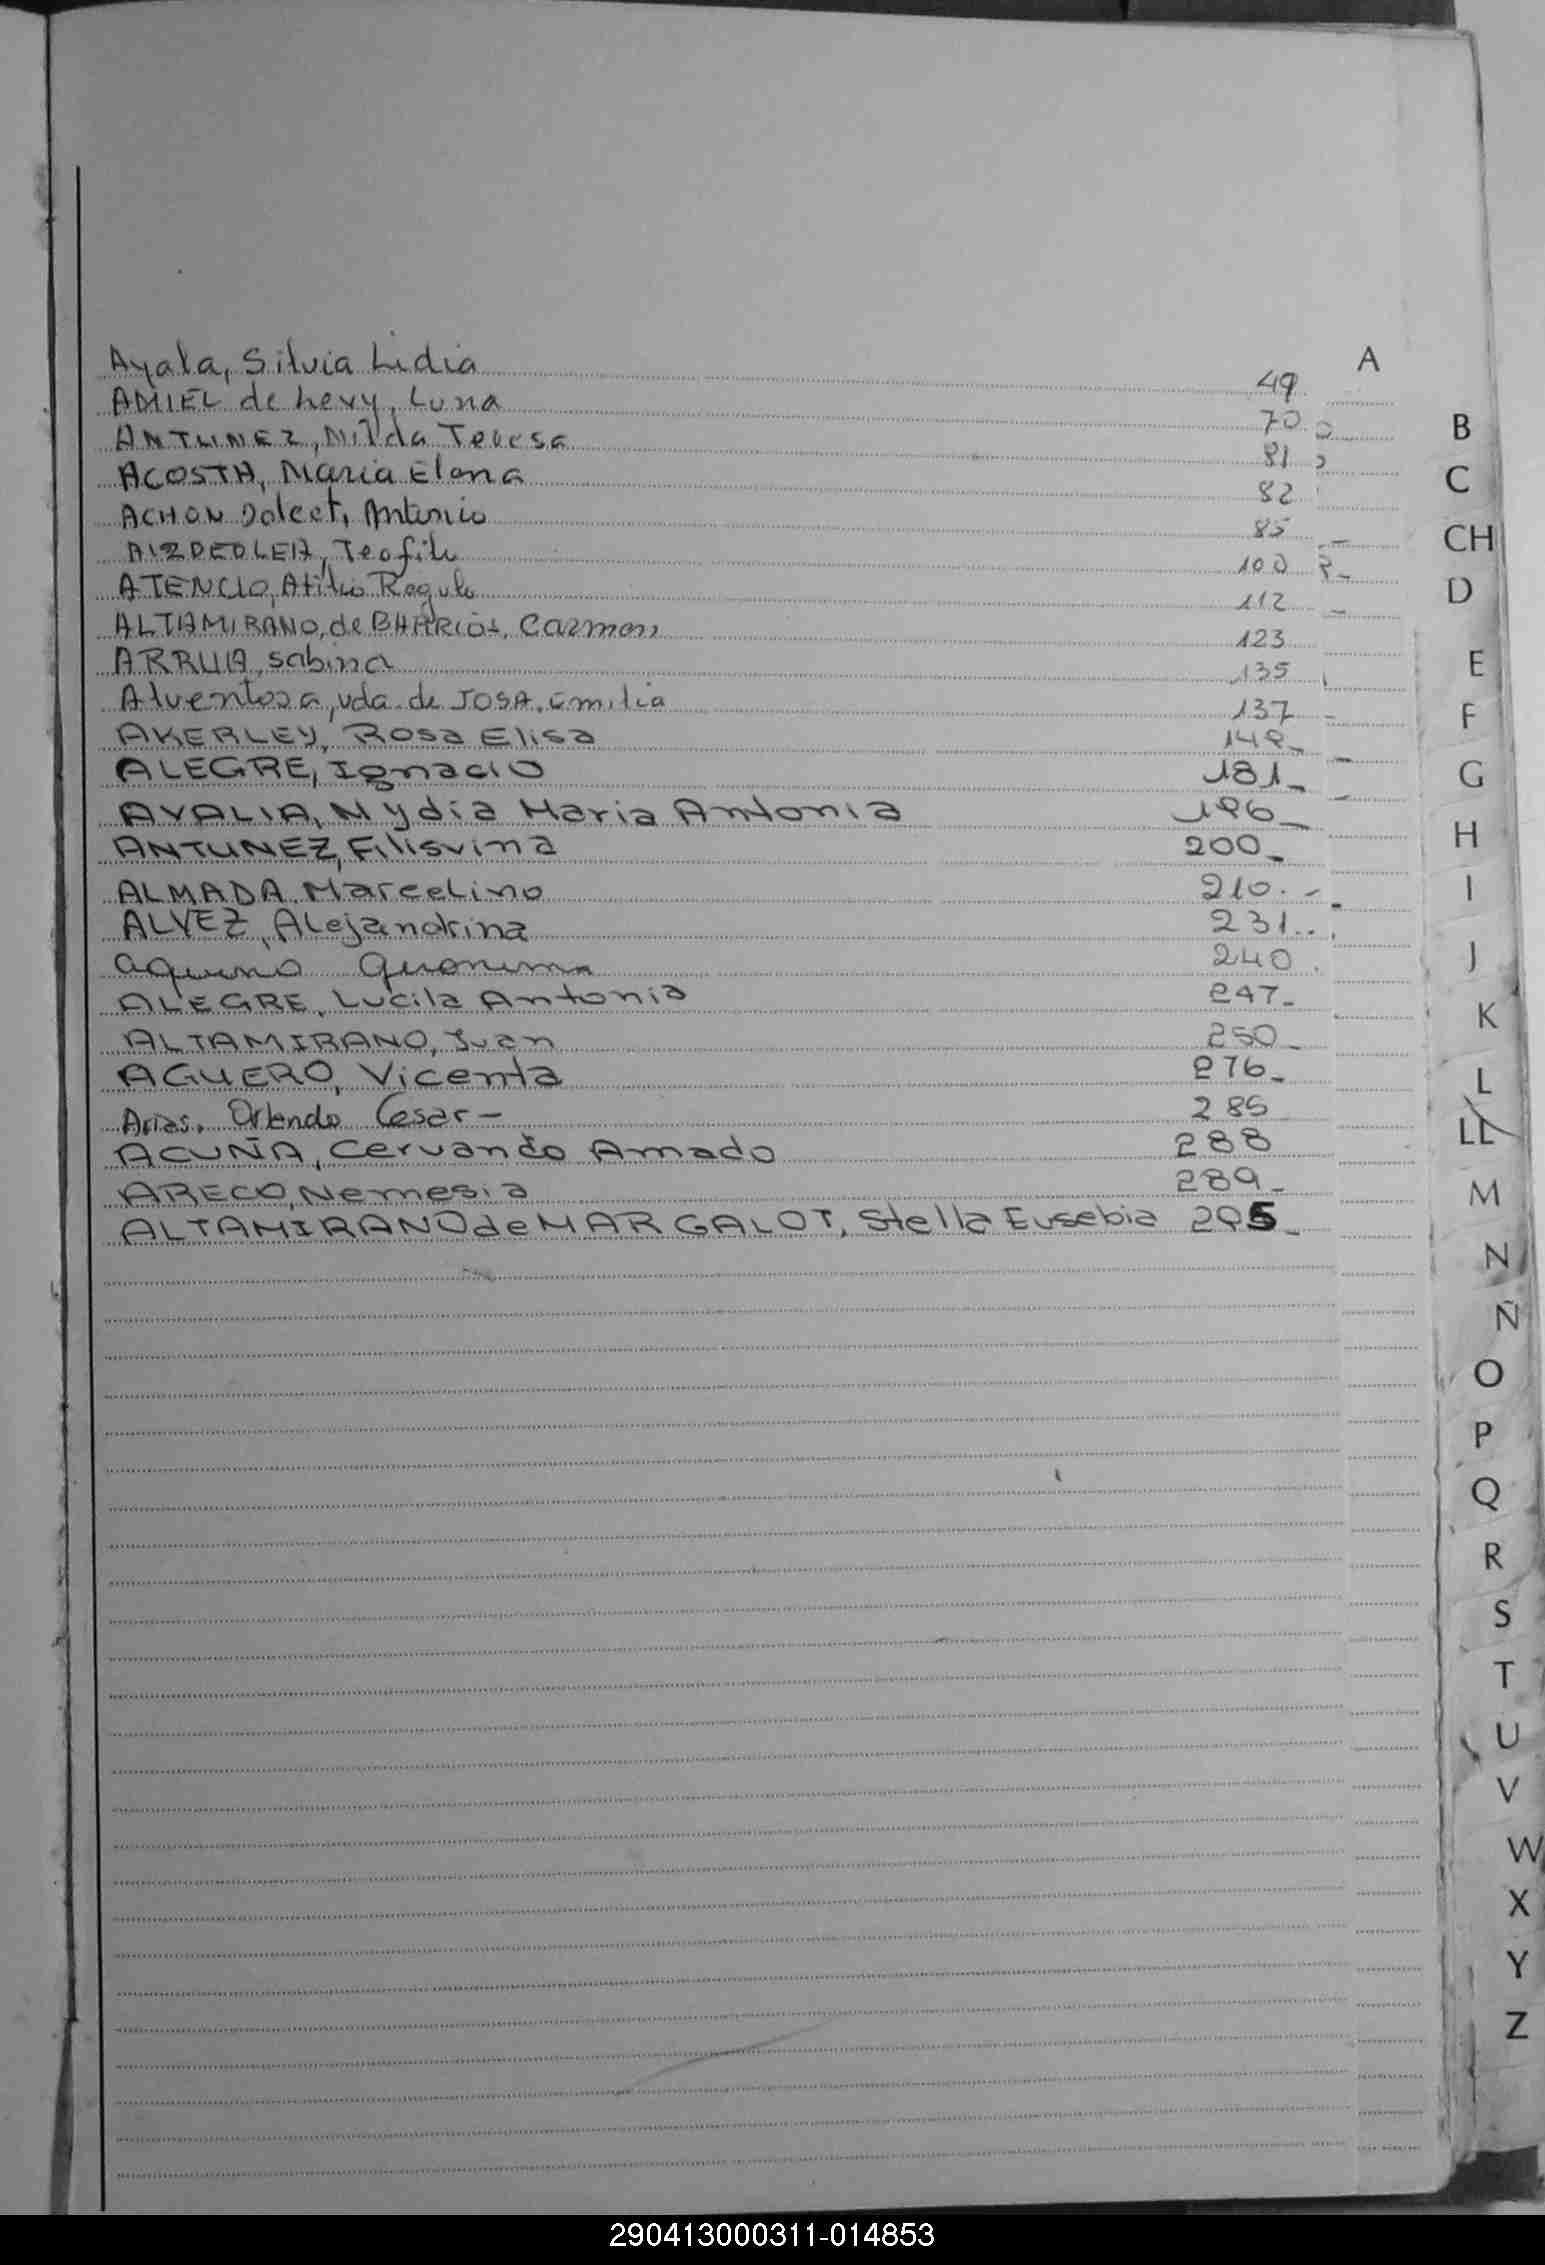 A
Ayala, Silvia Lidia 49
AMIEL de Levy, Luna 70
ANTUNEZ, Nilda Teresa 81
ACOSTA, Maria Elena 82
ACHON Dolcet, Antonio 85
Teofilo 100
ATENCIO, Atilio Regulo 112
ALTAMIRANO, de BARRIOS, Carmen 123
ARRUA, Sabina 135
Alventosa, vda. de JOSA, Emilia 137
AKERLEY, Rosa Elisa 149
ALEGRE, Ignacio 181
AYALIA, Nydia Maria Antonia 196
ANTUNEZ, Filisvina 200
ALMADA, Marcelino 210
ALVEZ, Alejandrina 231
Aquino Geronima 240
ALEGRE, Lucila Antonia 247
ALTAMIRANO, Juan 250
AGUERO, Vicenta 276
Arias, Orlando Cesar - 285
ACUÑA, Cervando Amado 288
ARECO, Nemesia 289
ALTAMIRANO de MARGALOT, Stella Eusebia 295
B
C
CH
D
E
F
G
H
I
J
K
L
LL
M
N
Ñ
O
P
Q
R
S
T
U
V
W
X
Y
Z
290413000311-014853